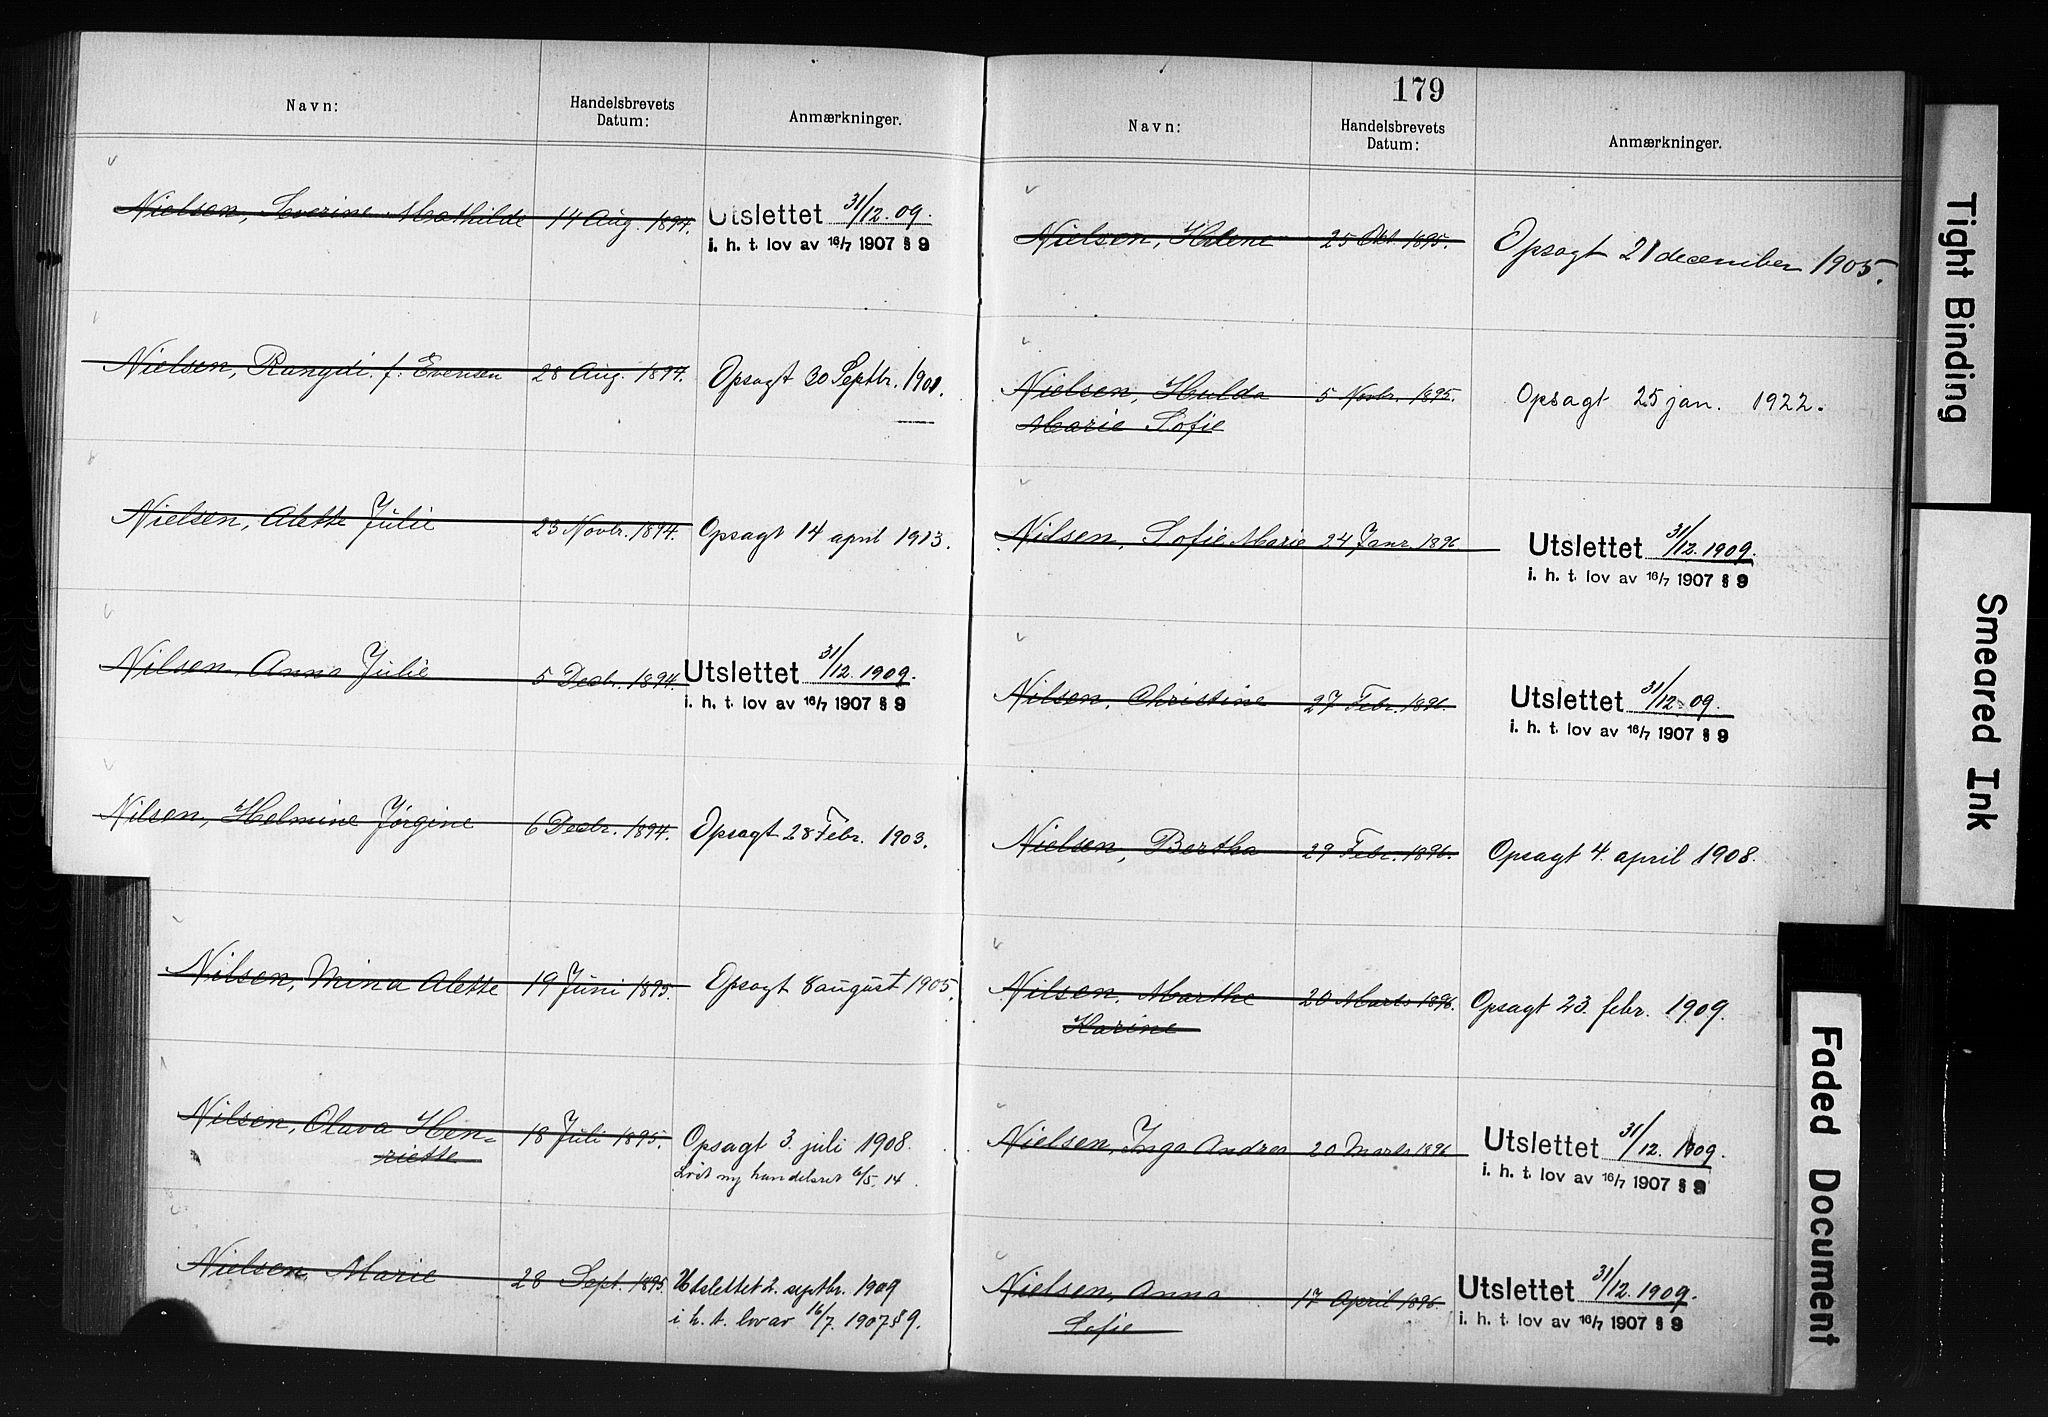 Navn:
Handelsbrevets
Datum:
Anmærkninger.
Nielsen, Severine Mathilde 14 Aug. 1894. Utslettet 31/12. 09.
i. h. t. lov av 16/7 1907 § 9
Nielsen, Rangdi f. Evensen 28 Aug. 1894. Opsagt 30 Septbr. 1901.
Nielsen, Alette Julie 23 Novbr. 1894. Opsagt 14 april 1913.
Nilsen, Anna Julie 5 Decbr. 1894. Utslettet 31/12. 1909.
i. h. t. lov av 16/7 1907 § 9
Nilsen, Helmine Jørgine 6 Decbr. 1894. Opsagt 28 Febr. 1903.
Nilsen, Mina Alette 19 Juni 1895. Opsagt 8 august 1905.
Nilsen, Olava Hen-
riette 18 Juli 1895. Opsagt 3. juli 1908.
Løst ny handelsret 6/5. 14.
Nielsen, Marie 28 Sept. 1895. Utslettet 2. septbr. 1909
i h. t. lov av 16/7. 1907 § 9.
179
Navn:
Handelsbrevets
Datum:
Anmærkninger.
Nielsen, Helene 25 Okt. 1895. Opsagt 21 december 1905.
Nielsen, Hulda
Marie Sofie 5 Novbr. 1895. Opsagt 25 jan. 1922.
Nilsen, Sofie Marie 24 Janr. 1896 Utslettet 31/12. 1909.
i. h. t. lov av 16/7 1907 § 9
Nilsen, Christine 27 Febr. 1896. Utslettet 31/12. 09.
i. h. t. lov av 16/7 1907 § 9
Nielsen, Bertha 29 Febr. 1896. Opsagt 4. april 1908.
Nilsen, Marthe
Karine 20 Marts 1896. Opsagt 23. febr. 1909.
Nielsen, Inga Andrea 20 Marts 1896 Utslettet 31/12. 1909.
i. h. t. lov av 16/7 1907 § 9
Nielsen, Anna
Sofie 17 April 1896. Utslettet 31/12. 1909.
i. h. t. lov av 16/7 1907 § 9
Tight Binding
Smeared Ink
Faded Document